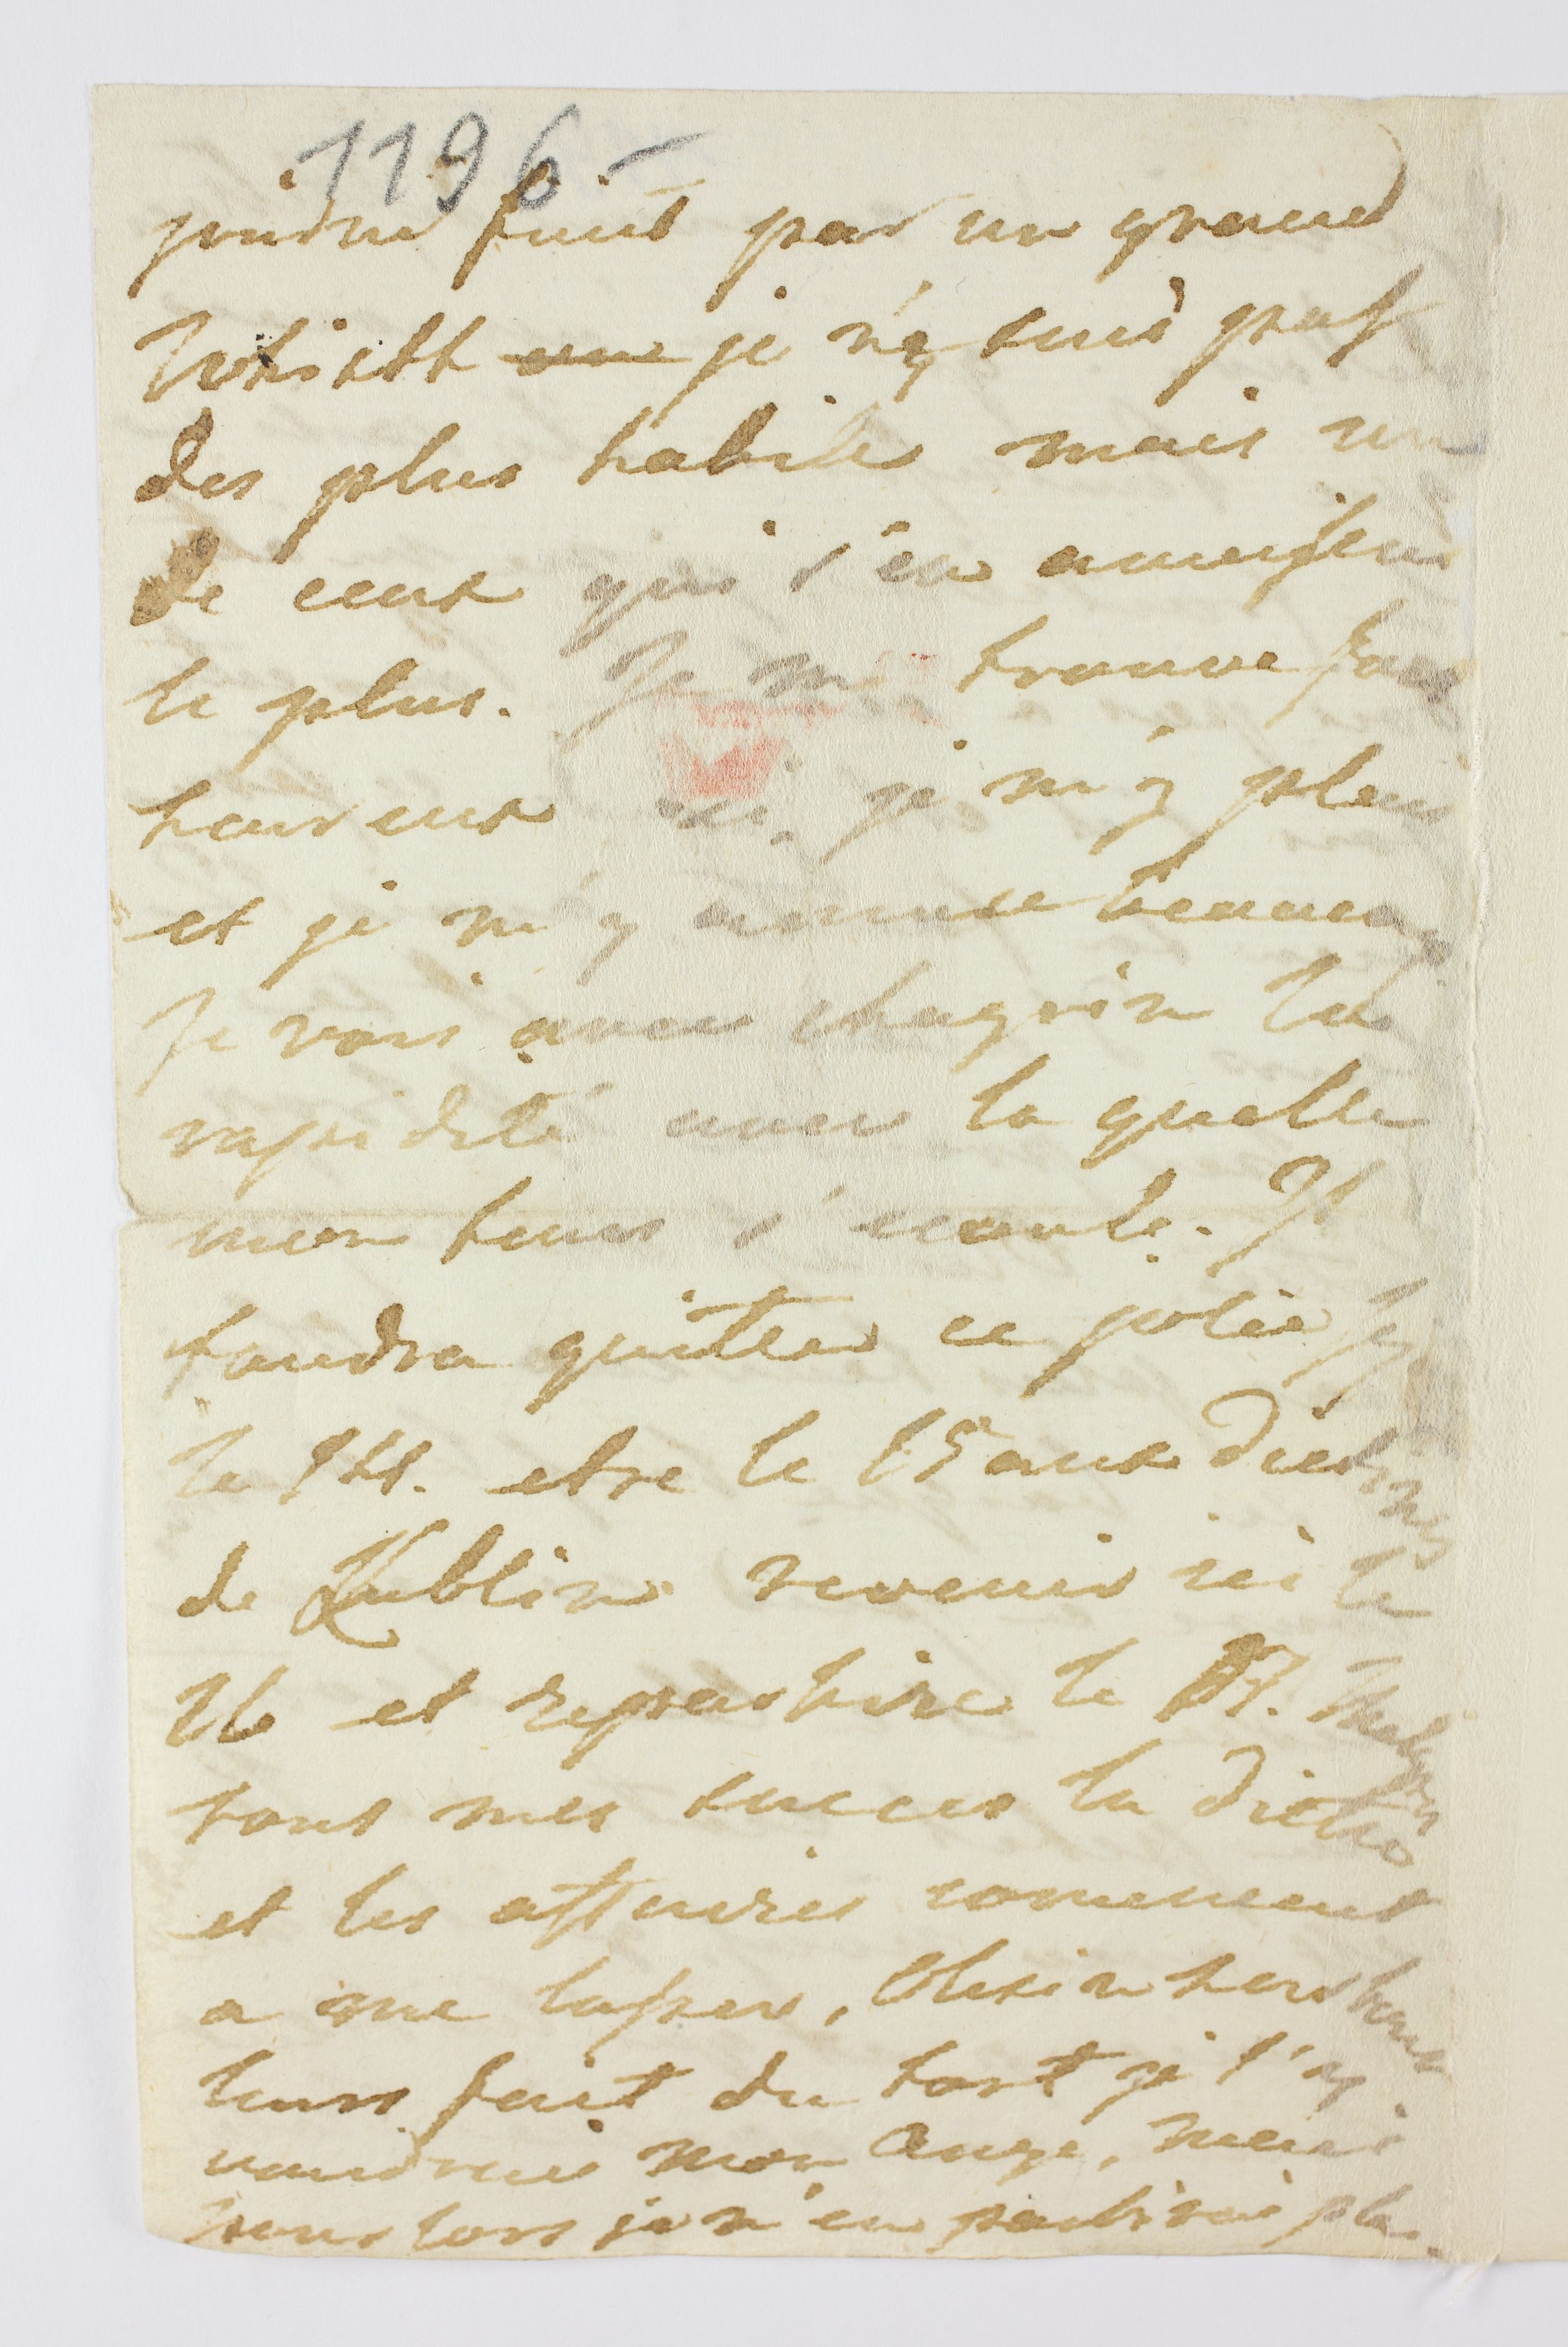 1196-
joindre finit par un grand
Whistt je n'y suis pas
des plus habiles mais un
de ceux qui s'en amusent
le plus. Je me trouve fort
heureux ici, je m'y plais
et je m'y amuse beaucoup
Je vois avec chagrin la
rapidité avec la quelle
mon tems s'ecoule. Il
faudra quitter ce jolie
le 14. etre le 15 aux Dietines
de Lublin revenir ici le
16 et repartire le 17. Malgré
tous mes succes la Diette
et les affaires comencent
a me lasser,
leurs fait du tort je l'ay
voudrais mon Ange, mais
pour lors je n'en partirai plus.